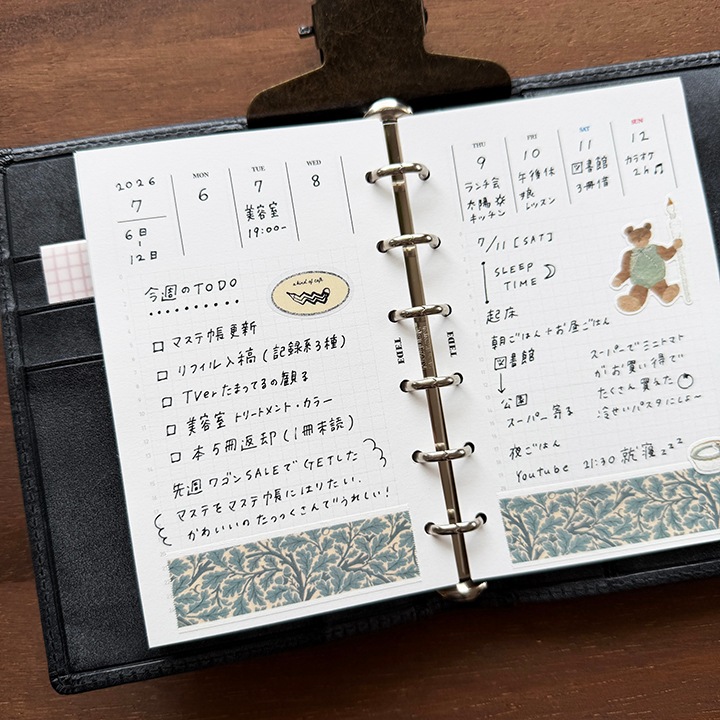 2026
7
6日
-
12日
MON
6
TUE
7
美容室
19:00-
WED
8
今週のTODO
a kind of café
□ マステ帳更新
□ リフィル入稿(記録系3種)
□ TVerたまってるの観る
□ 美容室 トリートメント・カラー
□ 本5冊返却(1冊未読)
先週ワゴンSALEでGETした
マステをマステ帳にはりたい.
かわいいのたっっくさんでうれしい!
THU
9
ランチ会
太陽
キッチン
FRI
10
午後休
娘
レッスン
SAT
11
図書館
3冊借
SUN
12
カラオケ
2h♬
7/11 [SAT]
SLEEP
TIME
起床
朝ごはん+お昼ごはん
図書館
↓
公園
スーパー寄る
夜ごはん
Youtube 21:30 就寝zzz
スーパーでミニトマト
がお買い得で
たくさん買えた
冷せいパスタにしよ~